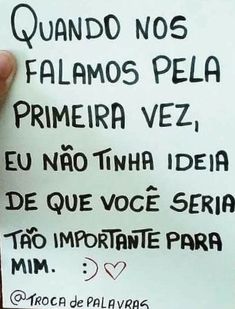 QUANDO NOS
FALAMOS PELA
PRIMEIRA VEZ,
EU NÃO TINHA IDEIA
DE QUE VOCÊ SERIA
TÃO IMPORTANTE PARA
MIM. :) ♡
@TROCA de PALAVRAS